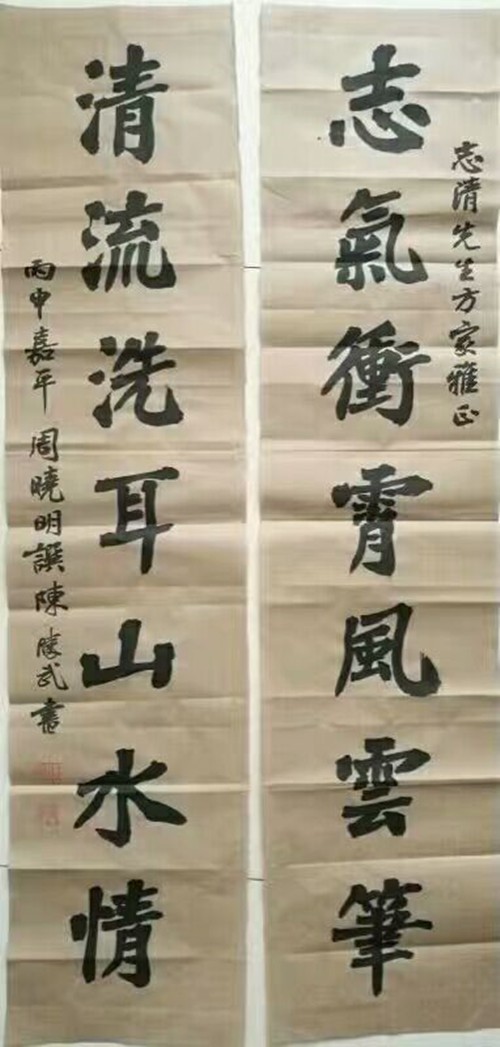 志清先生方家雅正
志氣衝霄風雲筆
清流洗耳山水情
丙申嘉平周曉明譔陳勝武書